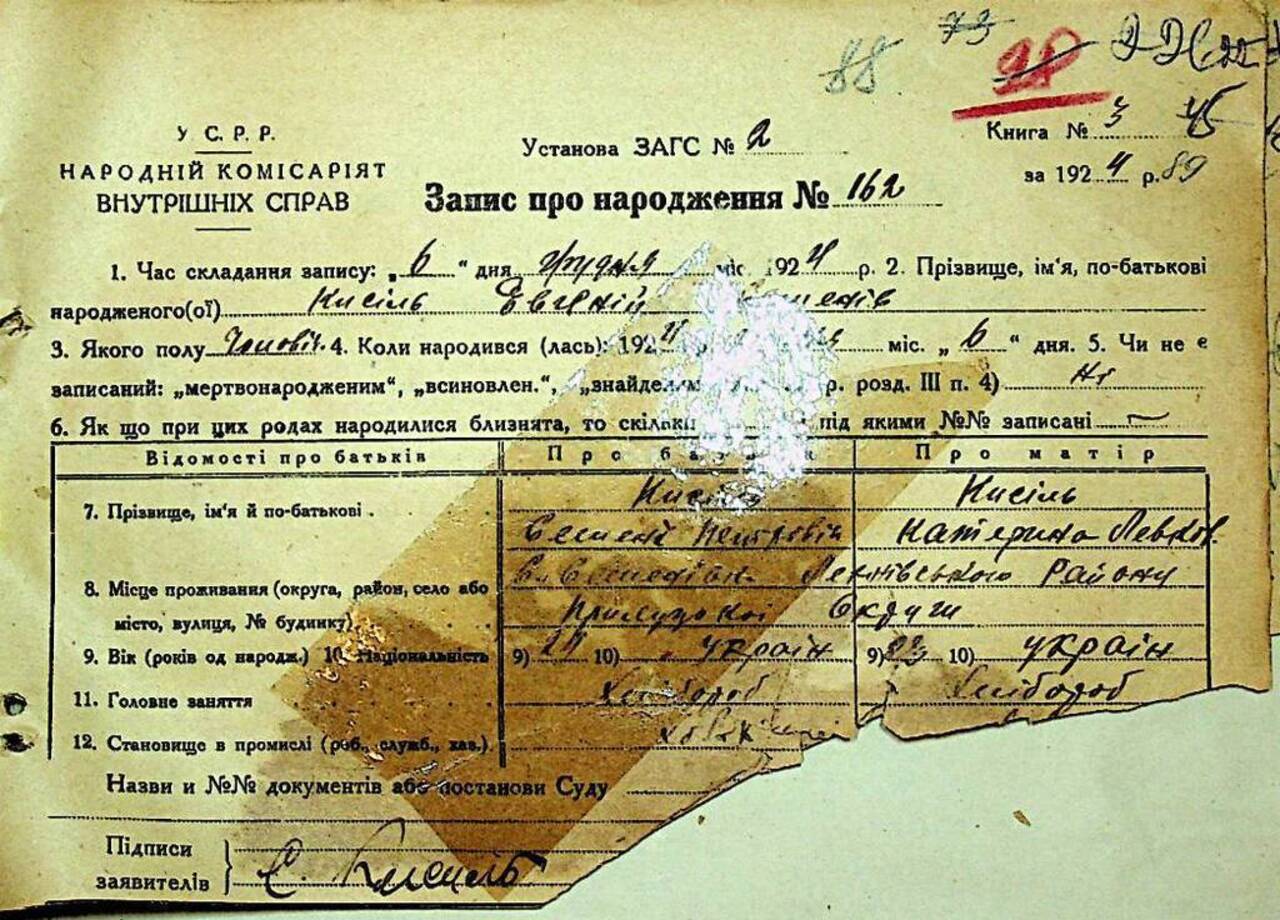 88 73
У. С. Р. Р.
НАРОДНІЙ КОМІСАРІЯТ
ВНУТРІШНІХ СПРАВ
Установа ЗАГС № 2
Запис про народження № 162
Книга № 3 45
за 1924 р. 89
1. Час складання запису: „ 6 “ дня грудня міс. 1924 р. 2. Прізвище, ім'я, по-батькові
народженого(ої) Кисіль Євгеній
3. Якого полу Чоловіч. 4. Коли народився (лась): 1924 міс. „ 6 “ дня. 5. Чи не є
записаний: „мертвонародженим“, „всиновлен.“, „знайдe р. розд. III п. 4) Ні
6. Як що при цих родах народилися близнята, то під якими №№ записані —
Відомості про батьків Про матір
7. Прізвище, ім'я й по-батькові . Кисіль
Семен Петрович Катерина Левков.
8. Місце проживання (округа, район, село або району
місто, вулиця, № будинку) Прилуцької Округи
9. Вік (років од народж.) 10. Національність 9) 10) україн 9) 23 10) україн
11. Головне заняття Хлібороб Хлібороб
12. Становище в промислі (роб., служб., хаз.)
Назви и №№ документів або постанови Суду
Підписи
заявителів } С. Кисіль